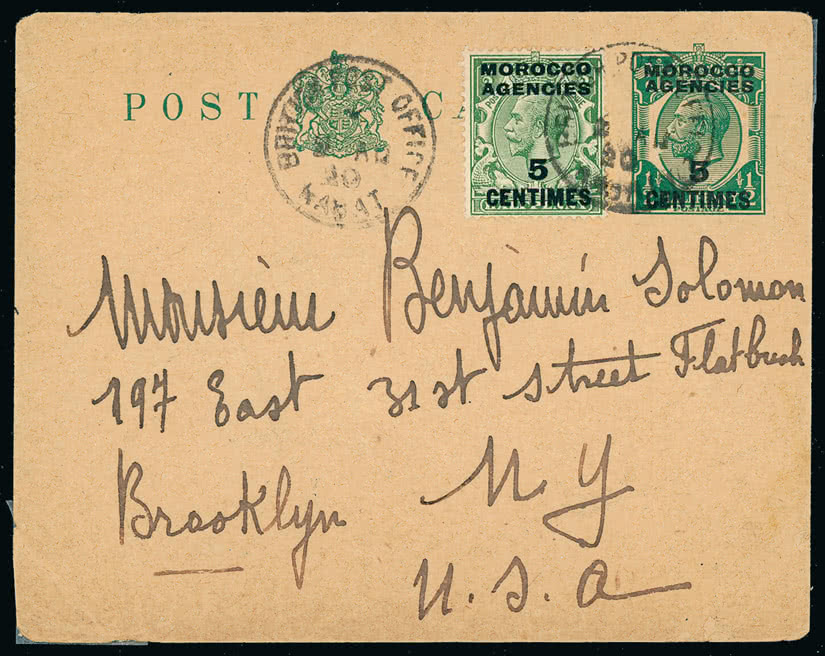 POST CA
BRITISH POST OFFICE
20
RABAT
MOROCCO
AGENCIES
5
CENTIMES
MOROCCO
AGENCIES
5
CENTIMES
Monsieur Benjamin Solomon
197 East 31st street Flatbush
Brooklyn N. Y
U. S. A